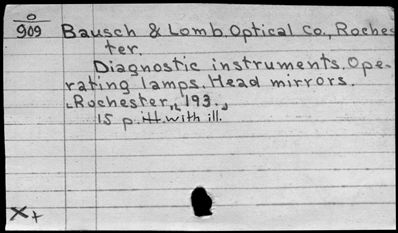 0
909
Bausch & Lomb Optical Co., Roches
ter.
Diagnostic instruments. Ope-
rating lamps. Head mirrors.
[Rochester,], 193.,
15 p. ill. with ill.
X+